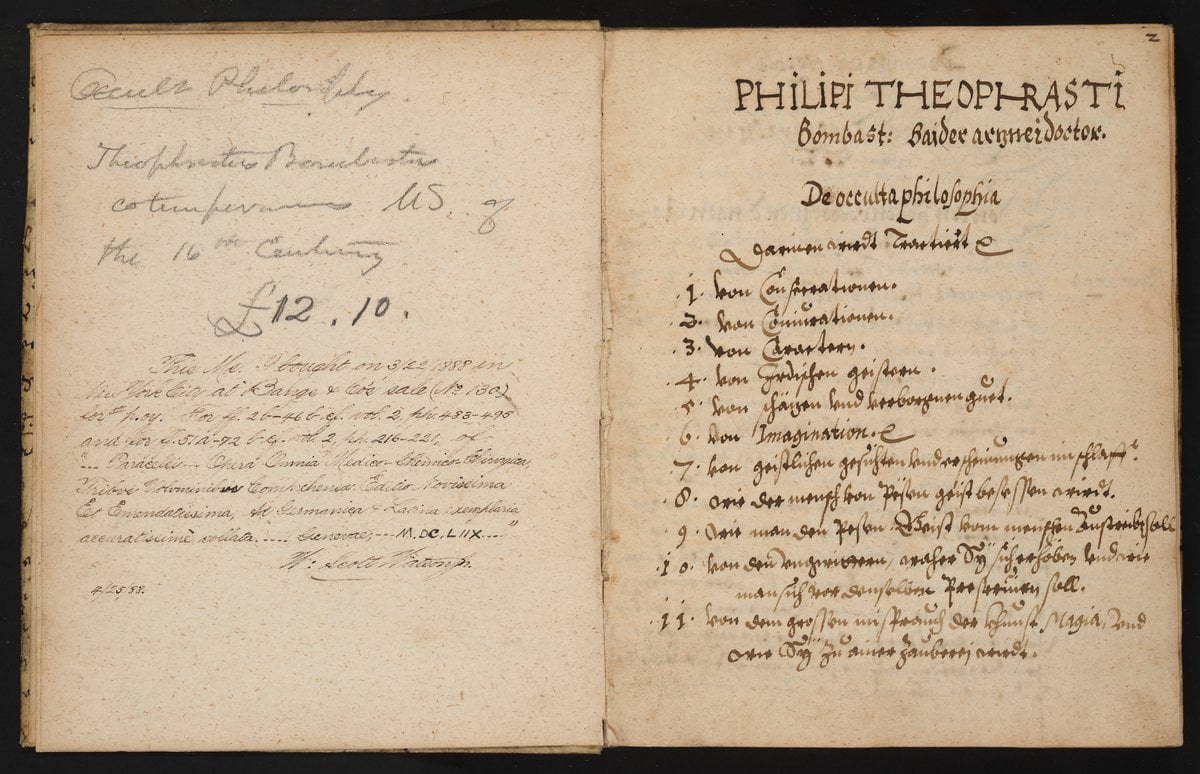 Occult Philosophy.
Theophrastus Bombastus
cotemperaneous MS. of
the 16th Century
£12.10.
This Ms. I bought on 3/22 1888 in
New York City at Bangs & Co's sale (No. 130)
for ff. 2b-46b cf. vol. 2, pp. 483-495
and for f. 51a-72b cf. vol. 2, pp. 216-221, of
"... Paracelsi ... Opera Omnia Medico-Chemico-Chirurgica,
Tribus Voluminibus Comprehensa. Editio Novissima
Et Emendatissima, Ad Germanica & Latina exemplaria
accuratissimè collata. .... Genevae, ... M.DC.LIIX...."
Wm. Scott
4/25/88.
2
PHILIPI THEOPHRASTI
Bombast: Baider arznei doctor.
De occulta philosophia
Darinen wirdt Tractiert
.1. von Consecrationen.
.2. von Coniurationen.
.3. von Caractern.
.4. von Irdischen geistern.
.5. von schäzen vnd verborgnen guet.
.6. von Imagination.
.7. von geistlichen gesichten vnd erscheinungen im schlaff.
.8. wie der mensch von Bösen geist besessen wirdt.
.9. wie man den Bösen Geist vom menschen Austreiben soll
.10. von den Vngewittern, woher Sÿ sich erhöben vnd wie
man sich vor denselben Preseruiern soll.
.11. von dem grossen missprauch der khunst Magia, vnd
wie Sÿ zu ainer Zauberej wirdt.